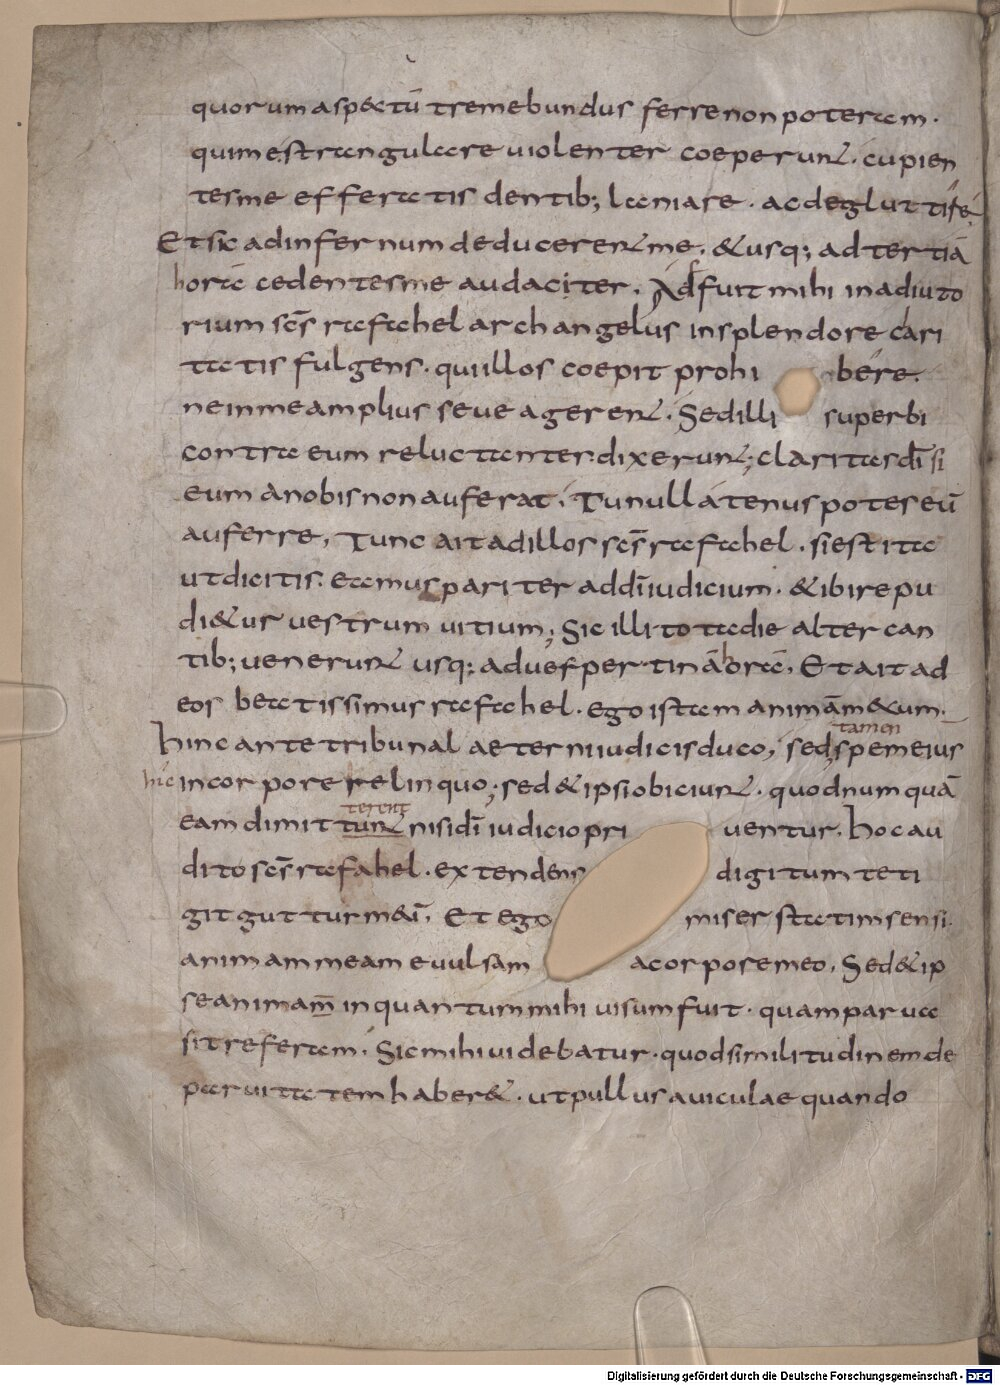 quorum aspectū tremebundus ferre non poteram.
qui me strangulare uiolenter coeperunt. cupien
tes me efferatis dentib; laniare. ac deglutti re
Et sic ad infernum deducerent me. & usq; ad tertiā
horā cedentes me audaciter. Adfuit mihi in adiuto
rium scs̄ rafahel archangelus in splendore clari
tatis fulgens. qui illos coepit prohi bere.
ne in me amplius seue agerent. Sed illi superbi
contra eum reluctanter dixerunt; claritas dī si
eum a nobis non auferat. Tu nullatenus potes eū
auferre, Tunc ait ad illos scs̄ rafahel. si est ita
ut dicitis. eamus pariter ad dī iudicium. & ibi repu
di&ur uestrum uitium; Sic illi tota die altercan
tib; uenerunt usq; ad uespertinā horā. Et ait ad
eos beatissimus rafahel. ego istam animam mecum
tamen
hinc ante tribunal aeterni iudicis duco, sed spem eius
hic in corpore relinquo; sed & ipsi obiciunt. quod numquā
terent
eam dimittunt nisi dī iudicio pri uentur. Hoc au
dito scs̄ rafahel. extendens digitum teti
git guttur m&ī. Et ego miser statim sensi
animam meam euulsam a corpore meo. Sed & ip
se animam̄ in quantum mihi uisum fuit. quam parua
sit referam. Sic mihi uidebatur. quod similitudinem de
paruitatem haber&. ut pullus auiculae quando
Digitalisierung gefördert durch die Deutsche Forschungsgemeinschaft - DFG